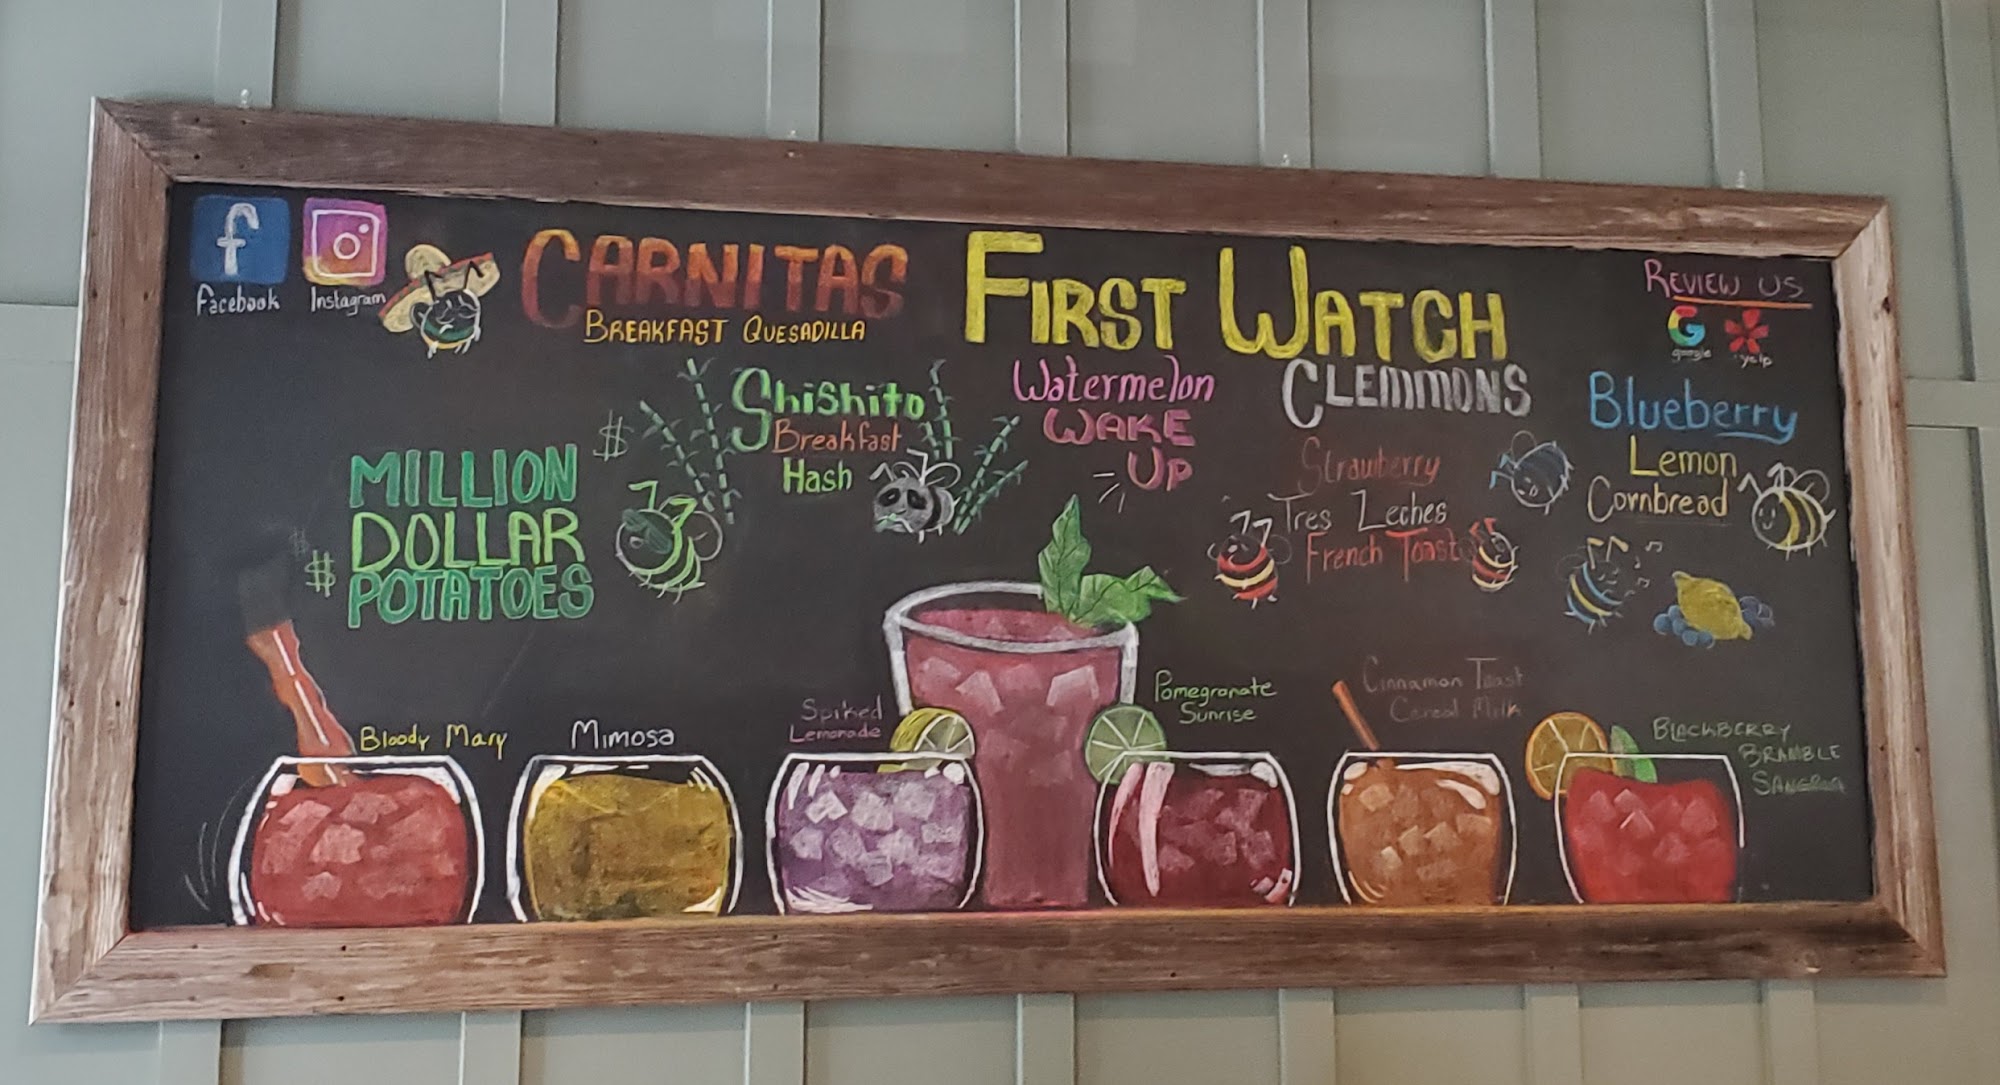 f
Facebook
Instagram
CARNITAS
BREAKFAST QUESADILLA
FIRST WATCH
CLEMMONS
REVIEW US
G
google
yelp
MILLION
DOLLAR
POTATOES
$
$
$
Shishito
Breakfast
Hash
Watermelon
WAKE
UP
Strawberry
Tres Leches
French Toast
Blueberry
Lemon
Cornbread
Bloody Mary
Mimosa
Spiked
Lemonade
Pomegranate
Sunrise
Cinnamon Toast
Cereal Milk
BLACKBERRY
BRAMBLE
SANGRIA